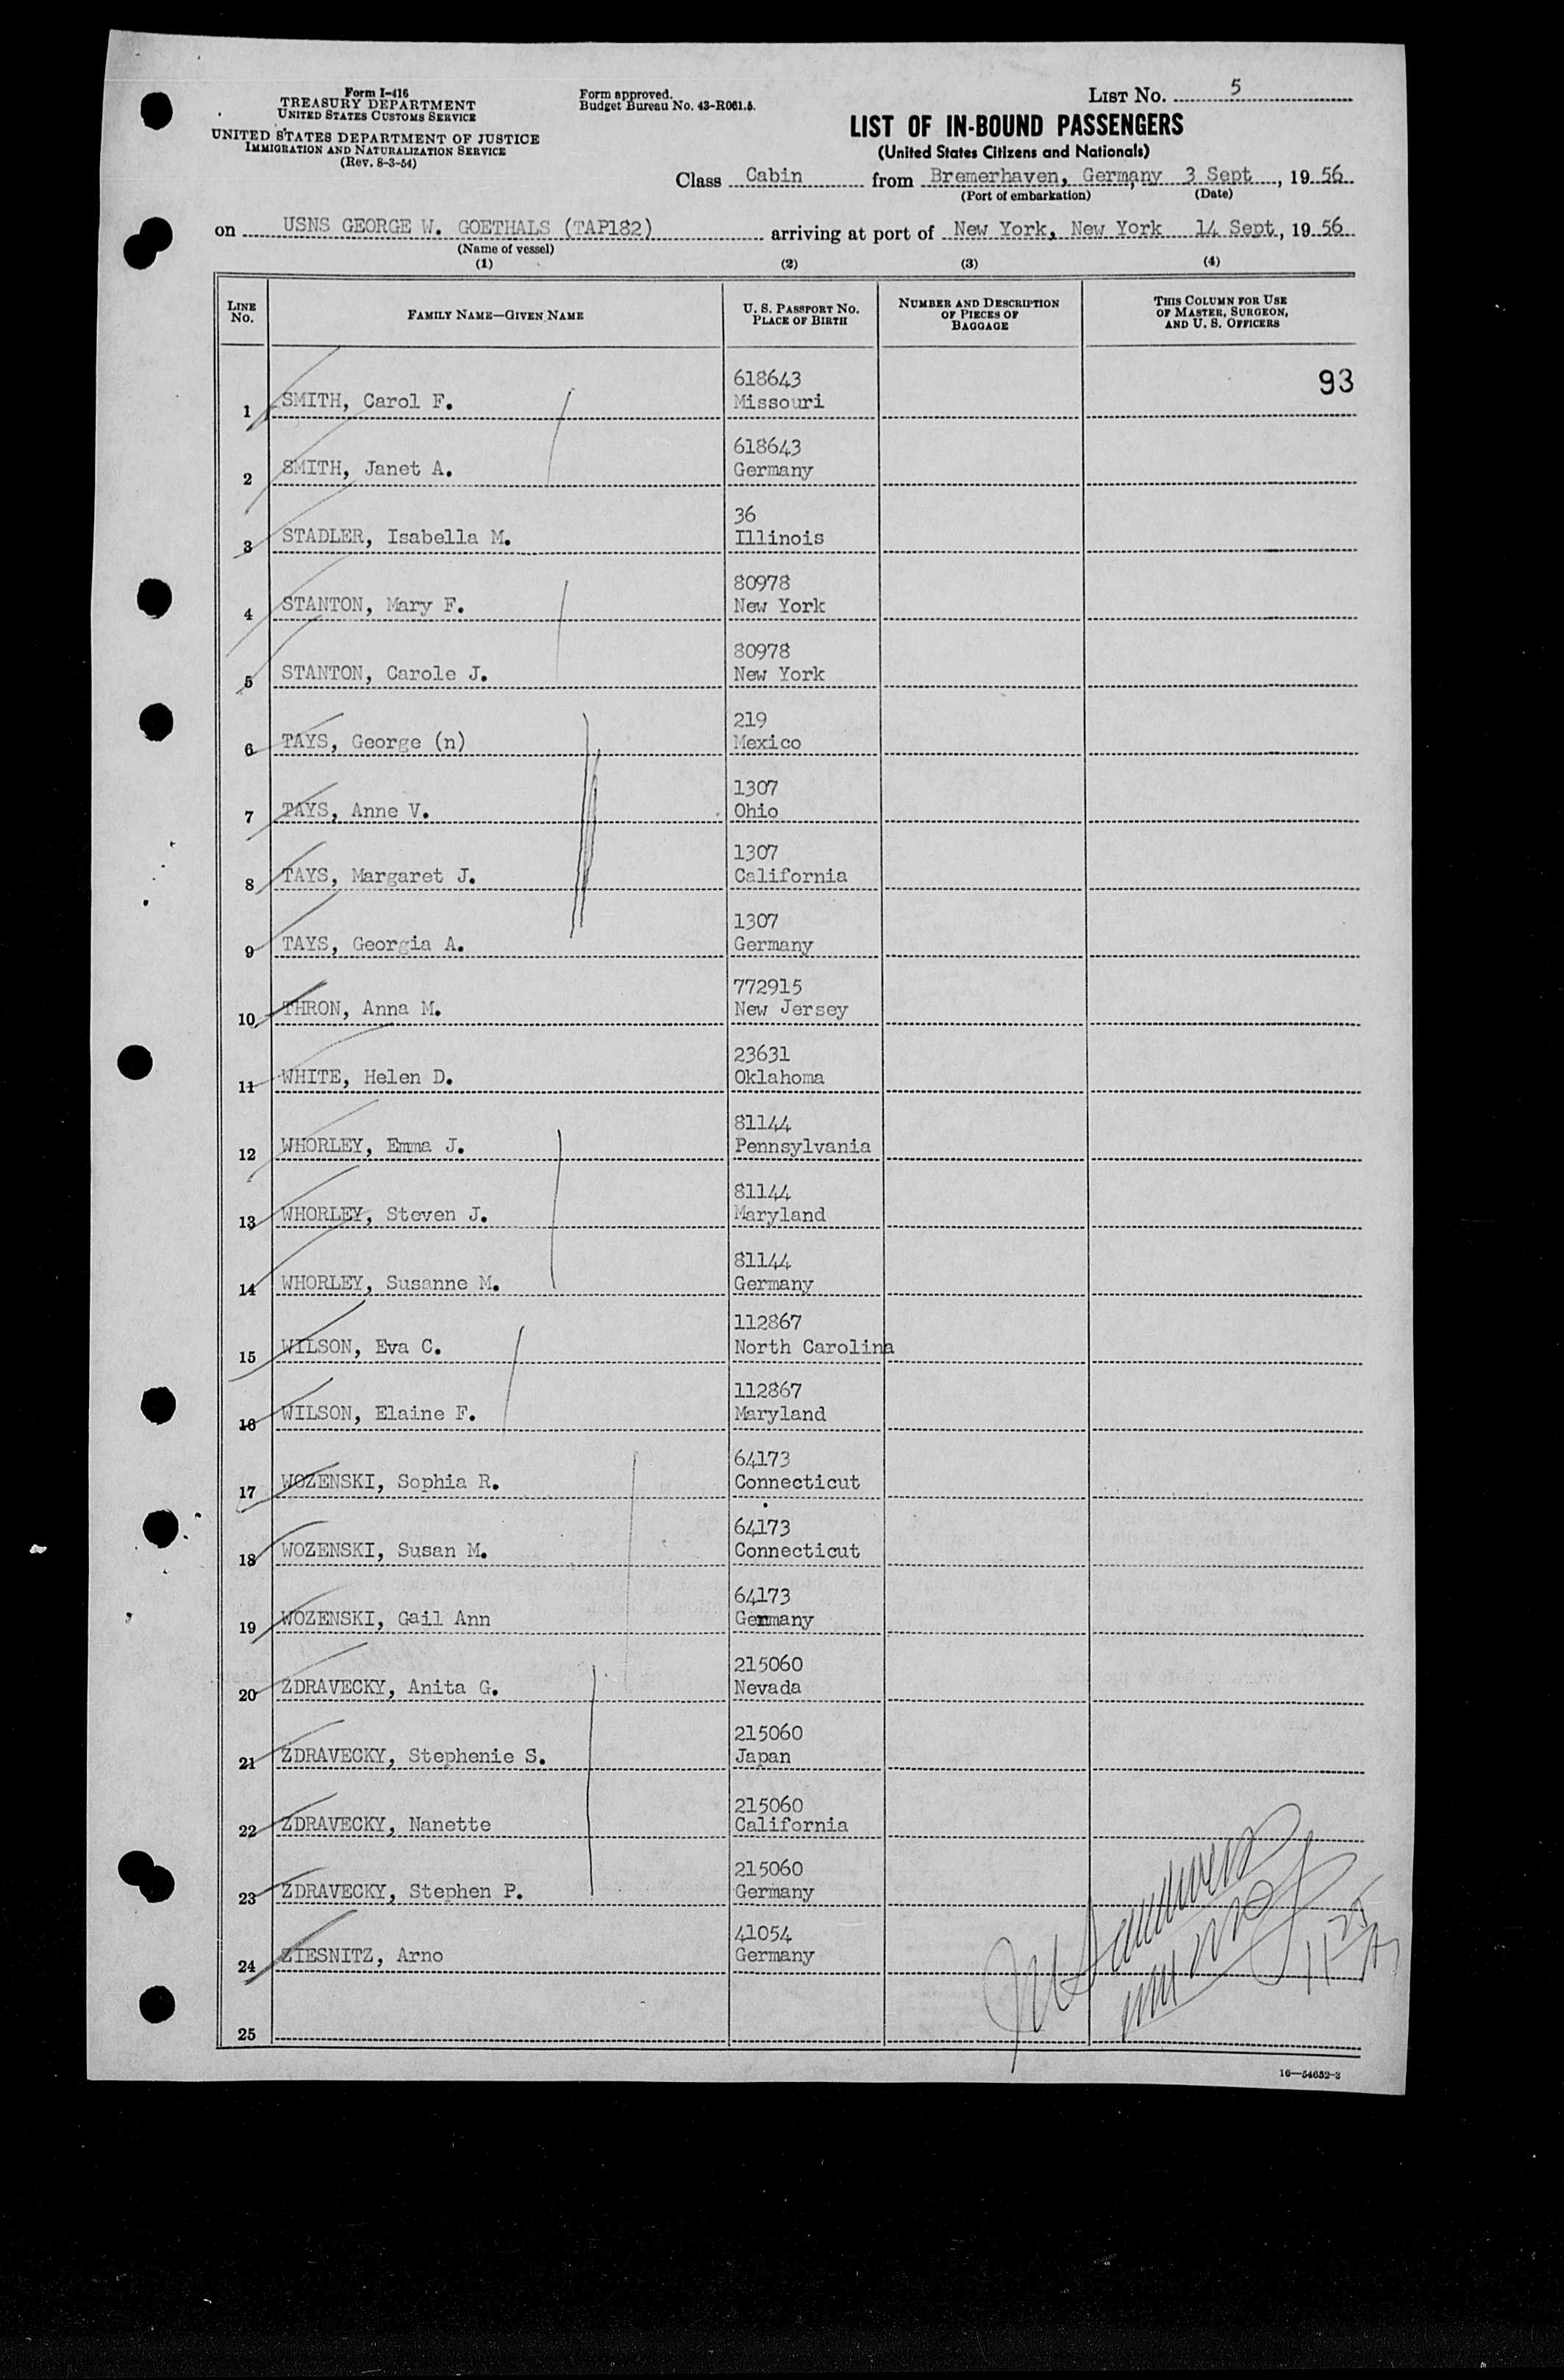 Form I-416
TREASURY DEPARTMENT
UNITED STATES CUSTOMS SERVICE
UNITED STATES DEPARTMENT OF JUSTICE
IMMIGRATION AND NATURALIZATION SERVICE
(Rev. 8-3-54)
Form approved.
Budget Bureau No. 43-R061.5.
LIST No. 5
LIST OF IN-BOUND PASSENGERS
(United States Citizens and Nationals)
Class Cabin from Bremerhaven, Germany 3 Sept, 19 56
(Port of embarkation) (Date)
on USNS GEORGE W. GOETHALS (TAP182) arriving at port of New York, New York 14 Sept, 19 56
(Name of vessel)
(1) (2) (3) (4)
LINE No. FAMILY NAME—GIVEN NAME U. S. PASSPORT NO. PLACE OF BIRTH NUMBER AND DESCRIPTION OF PIECES OF BAGGAGE THIS COLUMN FOR USE OF MASTER, SURGEON, AND U. S. OFFICERS
93
618643
1 SMITH, Carol F. Missouri
618643
2 SMITH, Janet A. Germany
36
3 STADLER, Isabella M. Illinois
80978
4 STANTON, Mary F. New York
80978
5 STANTON, Carole J. New York
219
6 TAYS, George (n) Mexico
1307
7 TAYS, Anne V. Ohio
1307
8 TAYS, Margaret J. California
1307
9 TAYS, Georgia A. Germany
772915
10 THRON, Anna M. New Jersey
23631
11 WHITE, Helen D. Oklahoma
81144
12 WHORLEY, Emma J. Pennsylvania
81144
13 WHORLEY, Steven J. Maryland
81144
14 WHORLEY, Susanne M. Germany
112867
15 WILSON, Eva C. North Carolina
112867
16 WILSON, Elaine F. Maryland
64173
17 WOZENSKI, Sophia R. Connecticut
64173
18 WOZENSKI, Susan M. Connecticut
64173
19 WOZENSKI, Gail Ann Germany
215060
20 ZDRAVECKY, Anita G. Nevada
215060
21 ZDRAVECKY, Stephenie S. Japan
215060
22 ZDRAVECKY, Nanette California
215060
23 ZDRAVECKY, Stephen P. Germany
41054
24 ZIESNITZ, Arno Germany
25
16—54652-3